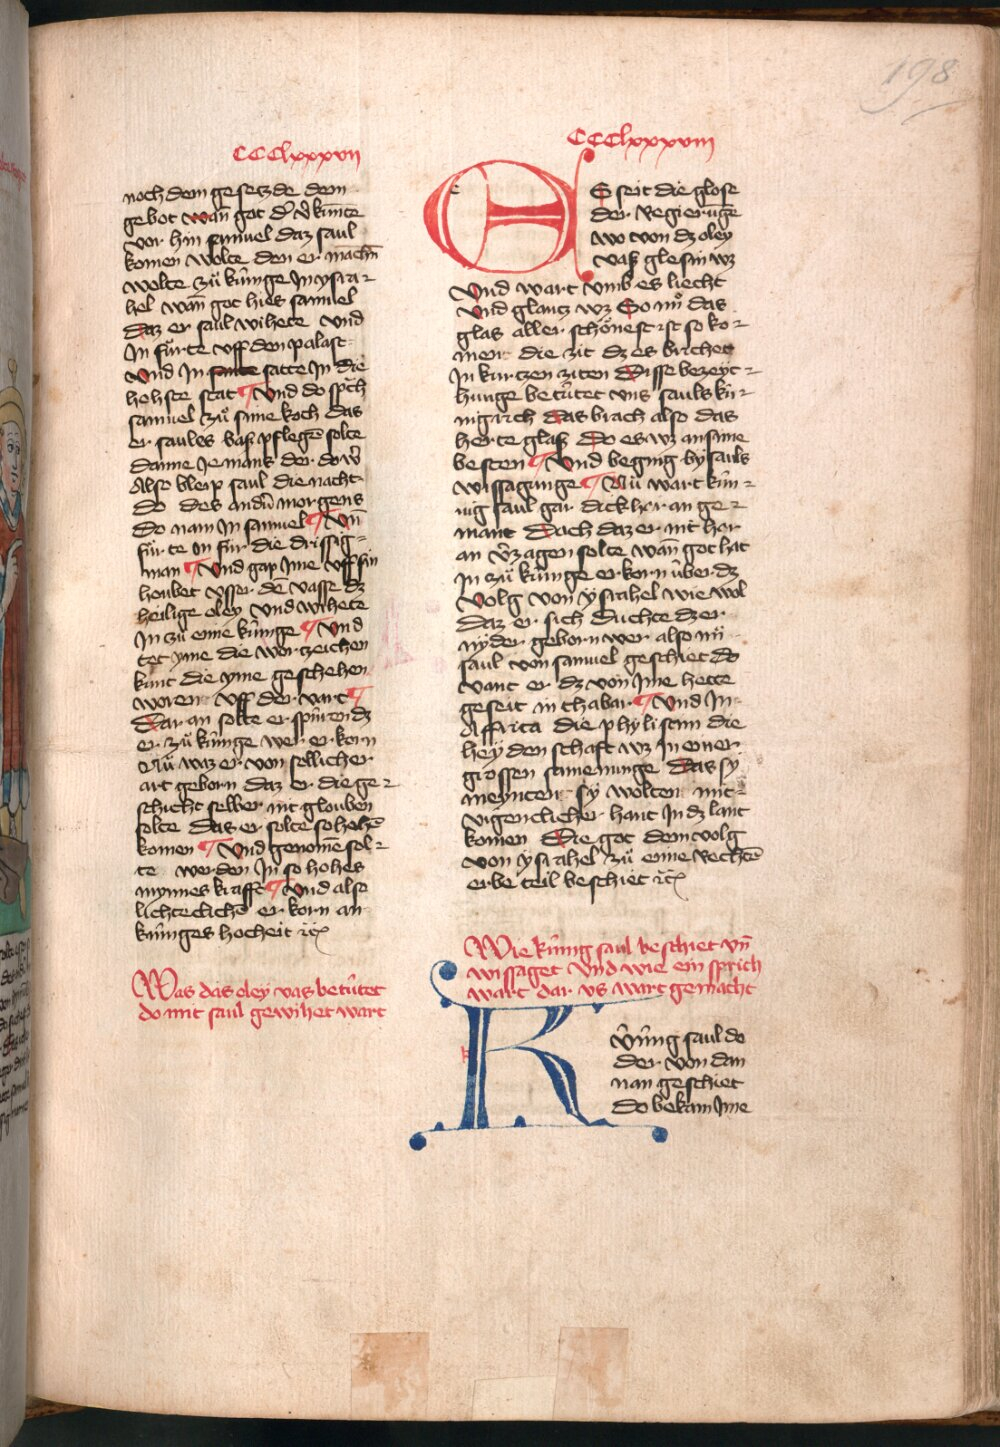 198
CCClxxxvii
noch dem gesetzde dem
gebot wan̄ got d' v'kunte
vor hin samuel daz saul
komen wolte den er machē
wolte zů kúnge In ysra⸗
hel wan̄ got hies samuel
daz er saul wihete vnd
In fůrte vff den palast
Vnd In satte In die
hehste stat ¶ Vnd do sp̄ch
samuel zů sime koch das
er saules baß pflegē solte
danne Jemans der do wˢ
Also bleip saul die nacht
do des andˢn morgens
do nam In samuel ¶ Vn̄
fůrte In fúr die drissig
man ¶ Vnd gap Ime vff sin
houbet vsser dē vasse dz
heilige oley vnd wihete
In zů eime kúnge ¶ Vnd
tet yme die wortzeichen
kunt die yme geschehen
woren vff der vart ¶
Dar an solte er spúren dz
er zů kúnge wer erkorn
Nů waz er von sollicher
art geborn daz er die ge⸗
schicht selber nit glouben
solte Das er solte so hohē
komen ¶ Vnd genomē sol⸗
te werden In so hohes
mynnes kraft ¶ Vnd also
lichteclichē erkorn an
kúnges hocheit ꝛcꝭ
Was das oley vas betútet
do mit saul gewihet wart
CCClxxxviii
ES seit die glose
der Regierūge
wo von dz oley
vaß glesin wz
Vnd wart vmb es liecht
Vnd glantz wz So nů das
glas aller schönest ist so ko⸗
men die zit dz es brichet
In kurtzen ziten Disse bezeyt⸗
hunge betútet vns sauls kú⸗
nigrich das brach also das
herte glaß Do es wz an sime
besten ¶ Vnd beging by sauls
wissagunge ¶ Nů wart kún⸗
nig saul gar dick her an ge⸗
mant Doch daz er nit her
an v'zagen solte wan̄ got hat
In zů kúnge erkorn úber dz
volg von ysrahel wie wol
daz er sich duchte dz er
nyder geborn wer also nů
saul von samuel geschiet do
vant er dz von Ime hette
geseit in thabar ¶ Vnd In
Affrica die phylistim die
heydenschaft wz In einer
grossen samenunge Das sy
meynten sy wolten mit
vigenclicher hant In dz lant
komen Die got dem volg
von ysrahel zů eime Rechtē
erbeteil beschiet ꝛcꝭ
Wie kúnig saul beschiet vn̄
wissaget vnd wie ein sprich
wart dar vs wart gemacht
KVnig saul do
der von dan
nan geschiet
do bekam Ime